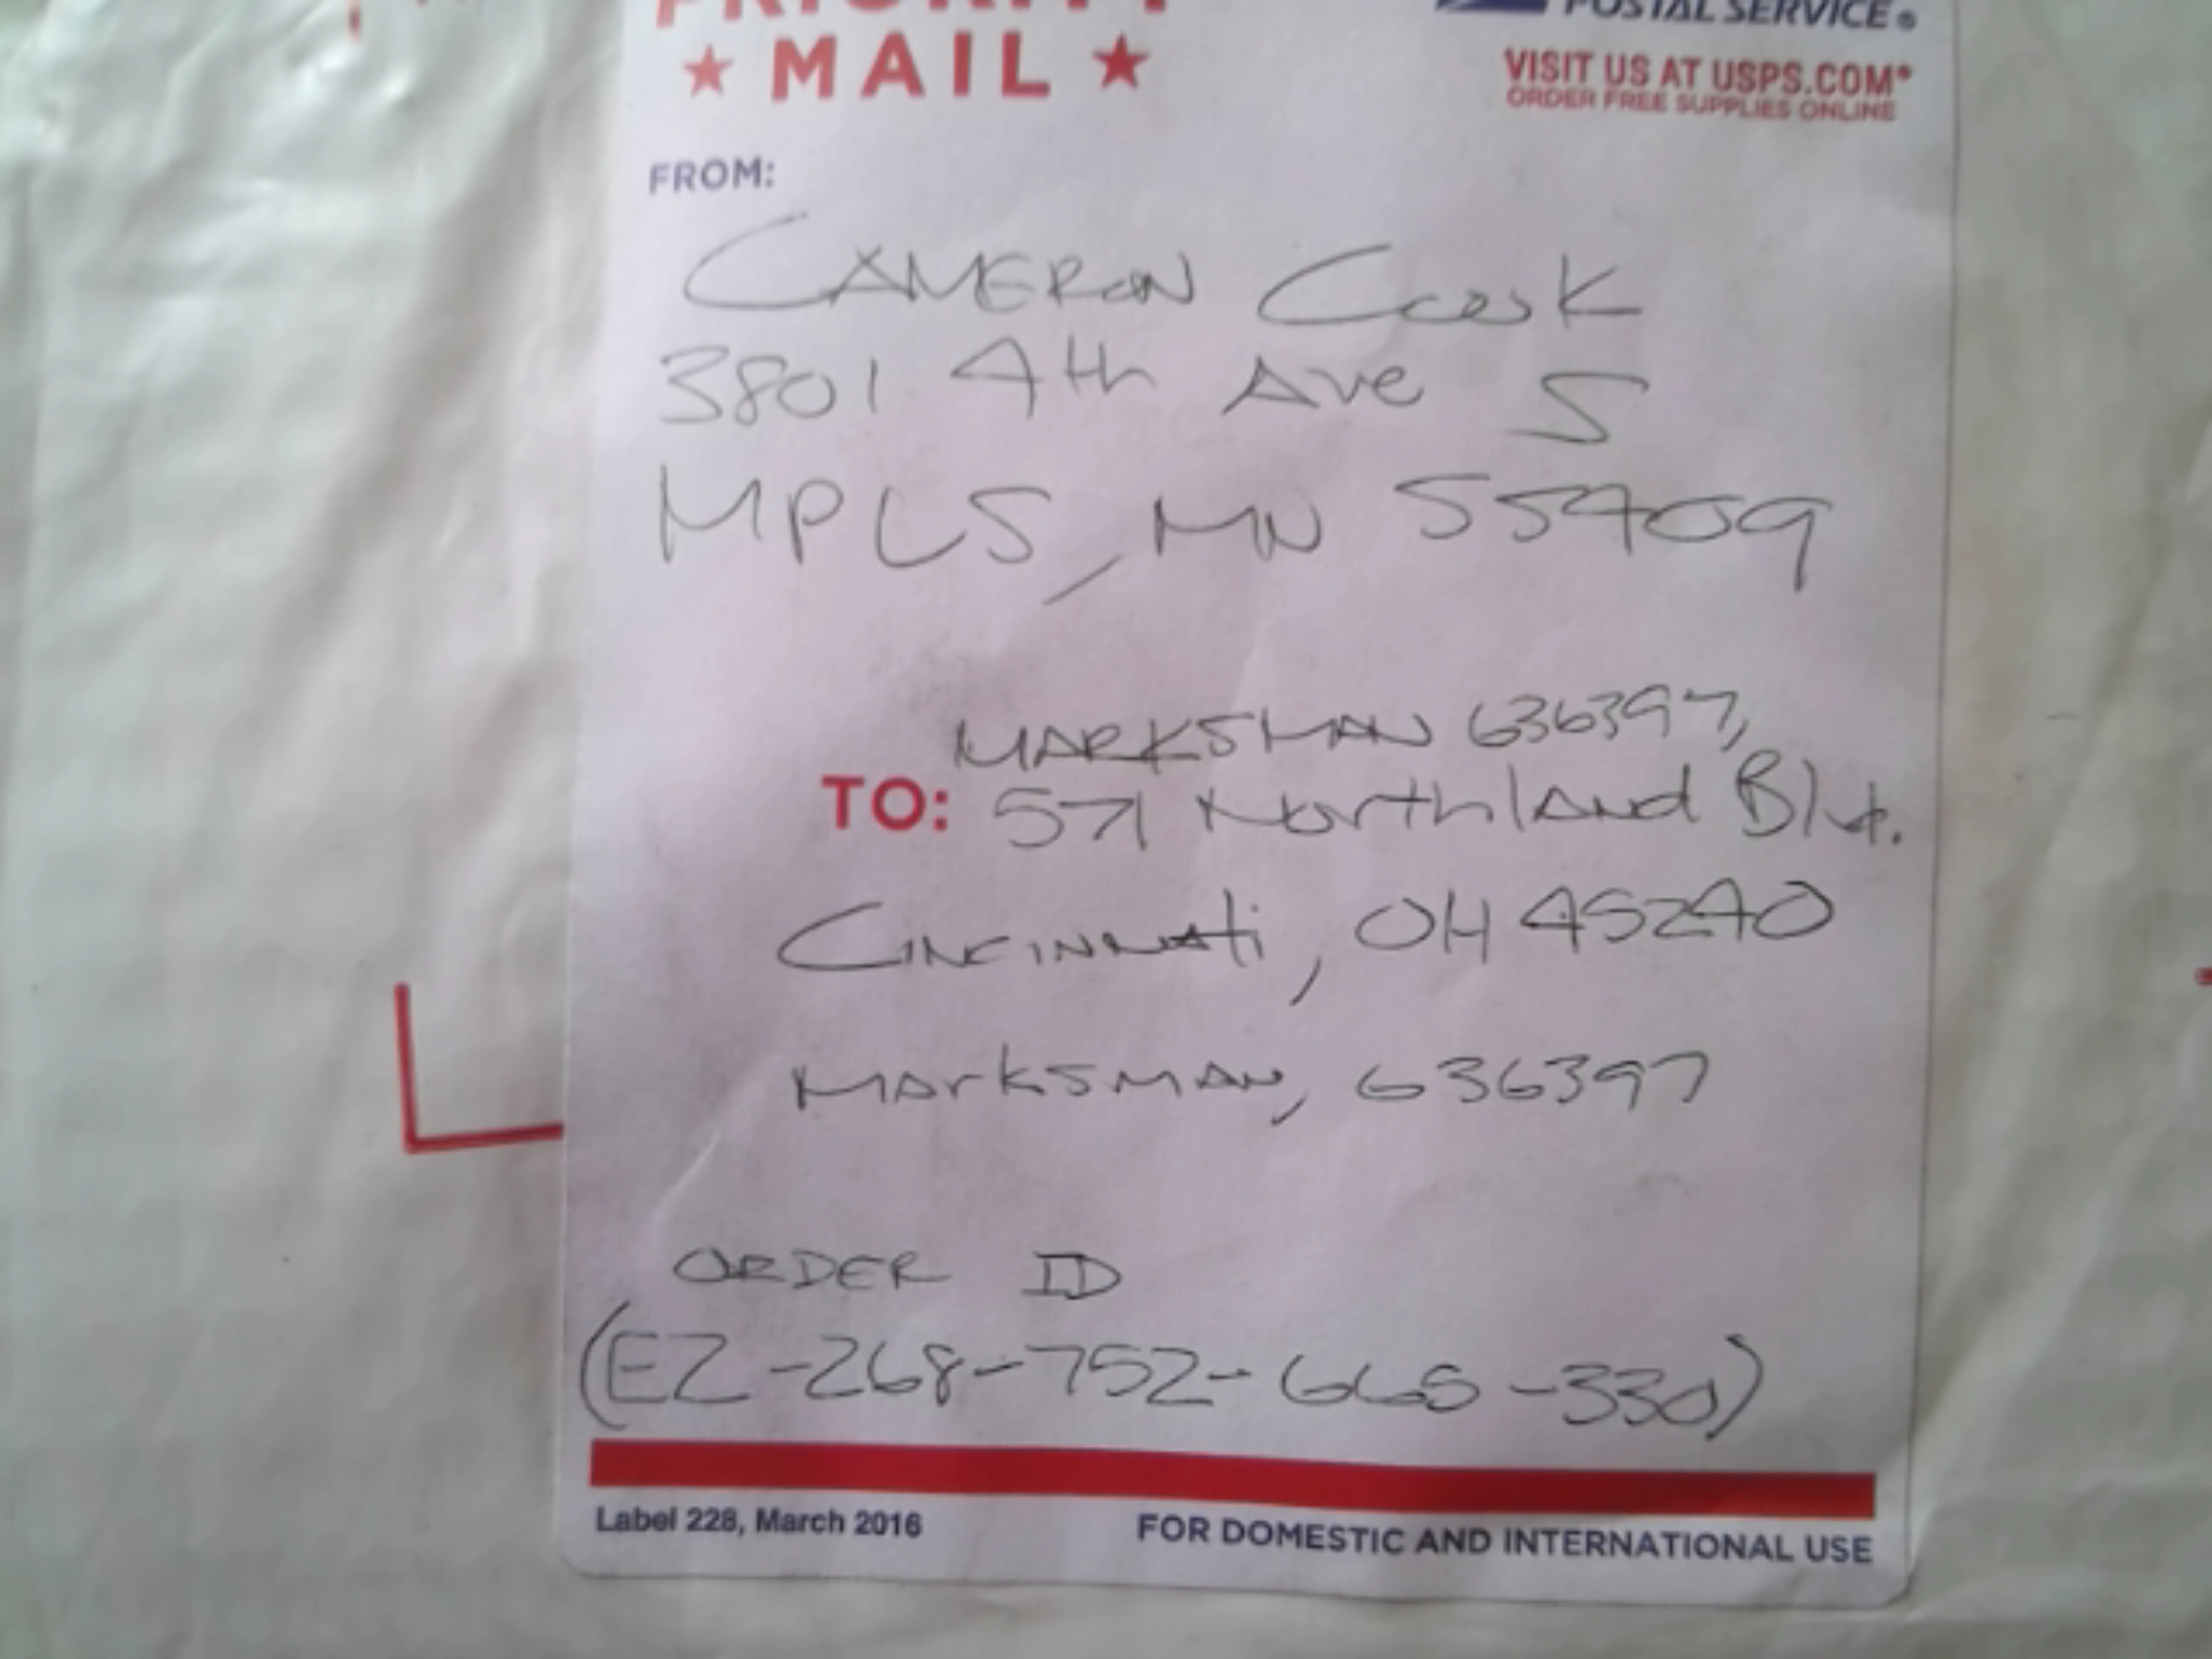 PRIORITY
★ MAIL ★
POSTAL SERVICE®
VISIT US AT USPS.COM®
ORDER FREE SUPPLIES ONLINE
FROM:
CAMERON COOK
3801 4th Ave S
MPLS, MN 55409
MARKSMAN 636397,
TO: 571 Northland Blvd.
Cincinnati, OH 45240
Marksman, 636397
ORDER ID
(EZ-268-752-665-330)
Label 228, March 2016
FOR DOMESTIC AND INTERNATIONAL USE